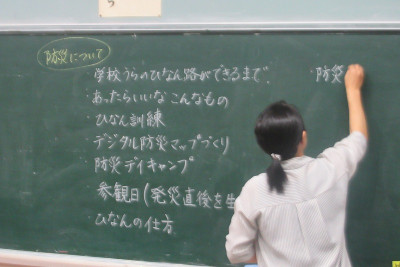 防災について
学校うらのひなん路ができるまで
・あったらいいなこんなもの
・ひなん訓練
・デジタル防災マップづくり
・防災デイキャンプ
・参観日(発災直後を生
・ひなんの仕方
・防災